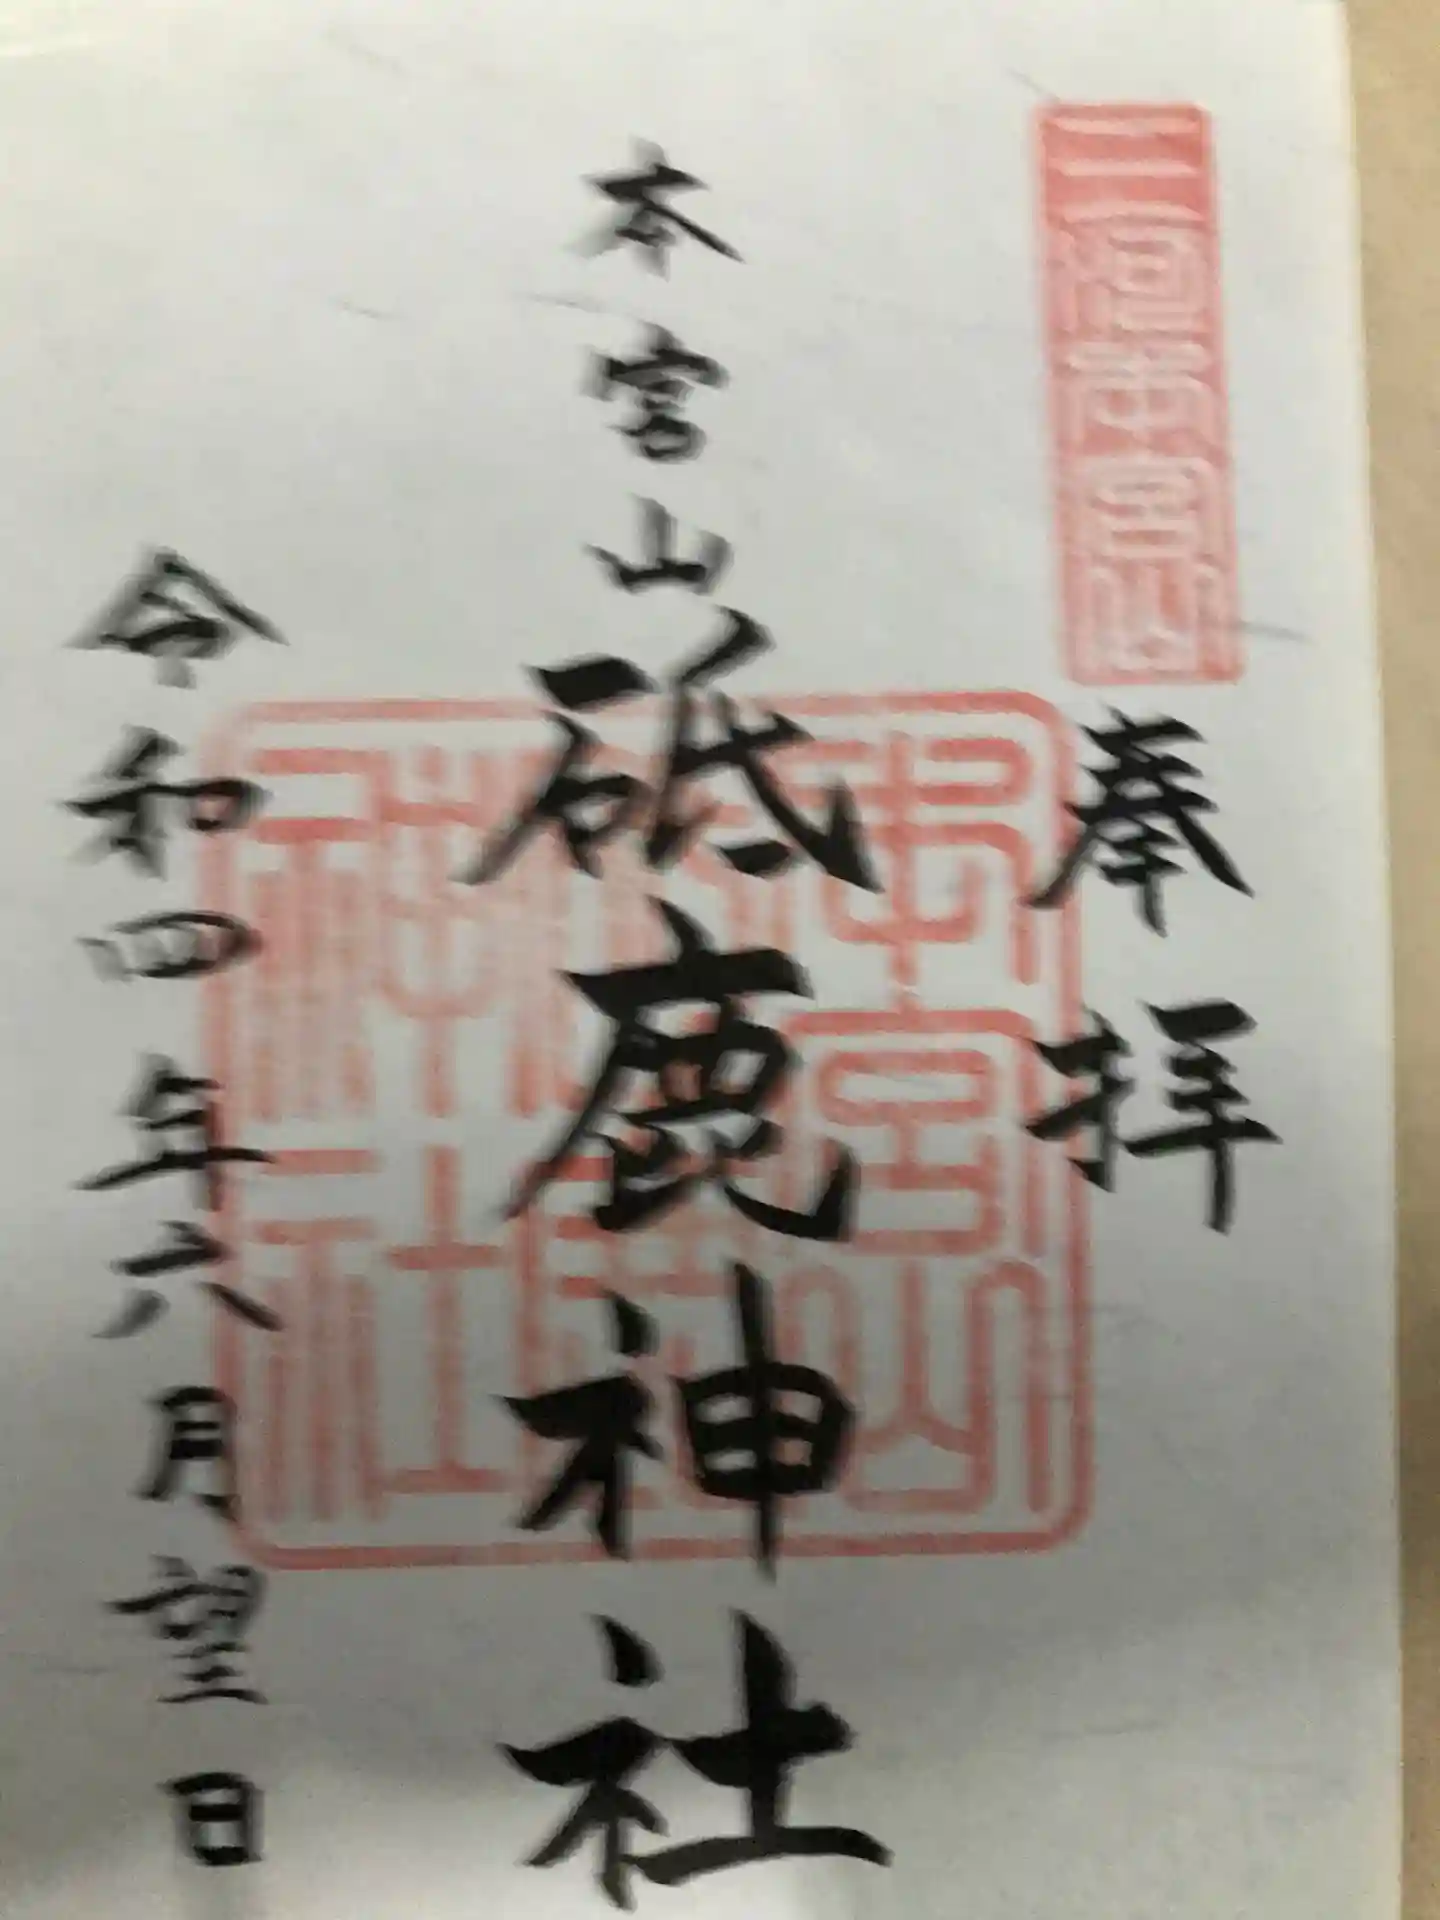 三河本宮山
奉拝
本宮山砥鹿神社
本宮山
砥鹿
神社
令和四年六月望日